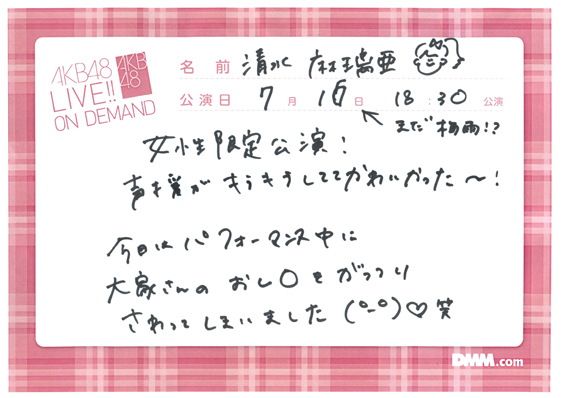 AKB48
LIVE!!
ON DEMAND
AKB
48
名前 清水 麻璃亜
公演日 7月 16日 18:30 公演
まだ梅雨!?
女性限定公演!
声援がキラキラしててかわいかった〜!
今日はパフォーマンス中に
大家さんのおし〇をがっつり
さわってしまいました(°-°)♡笑
DMM.com